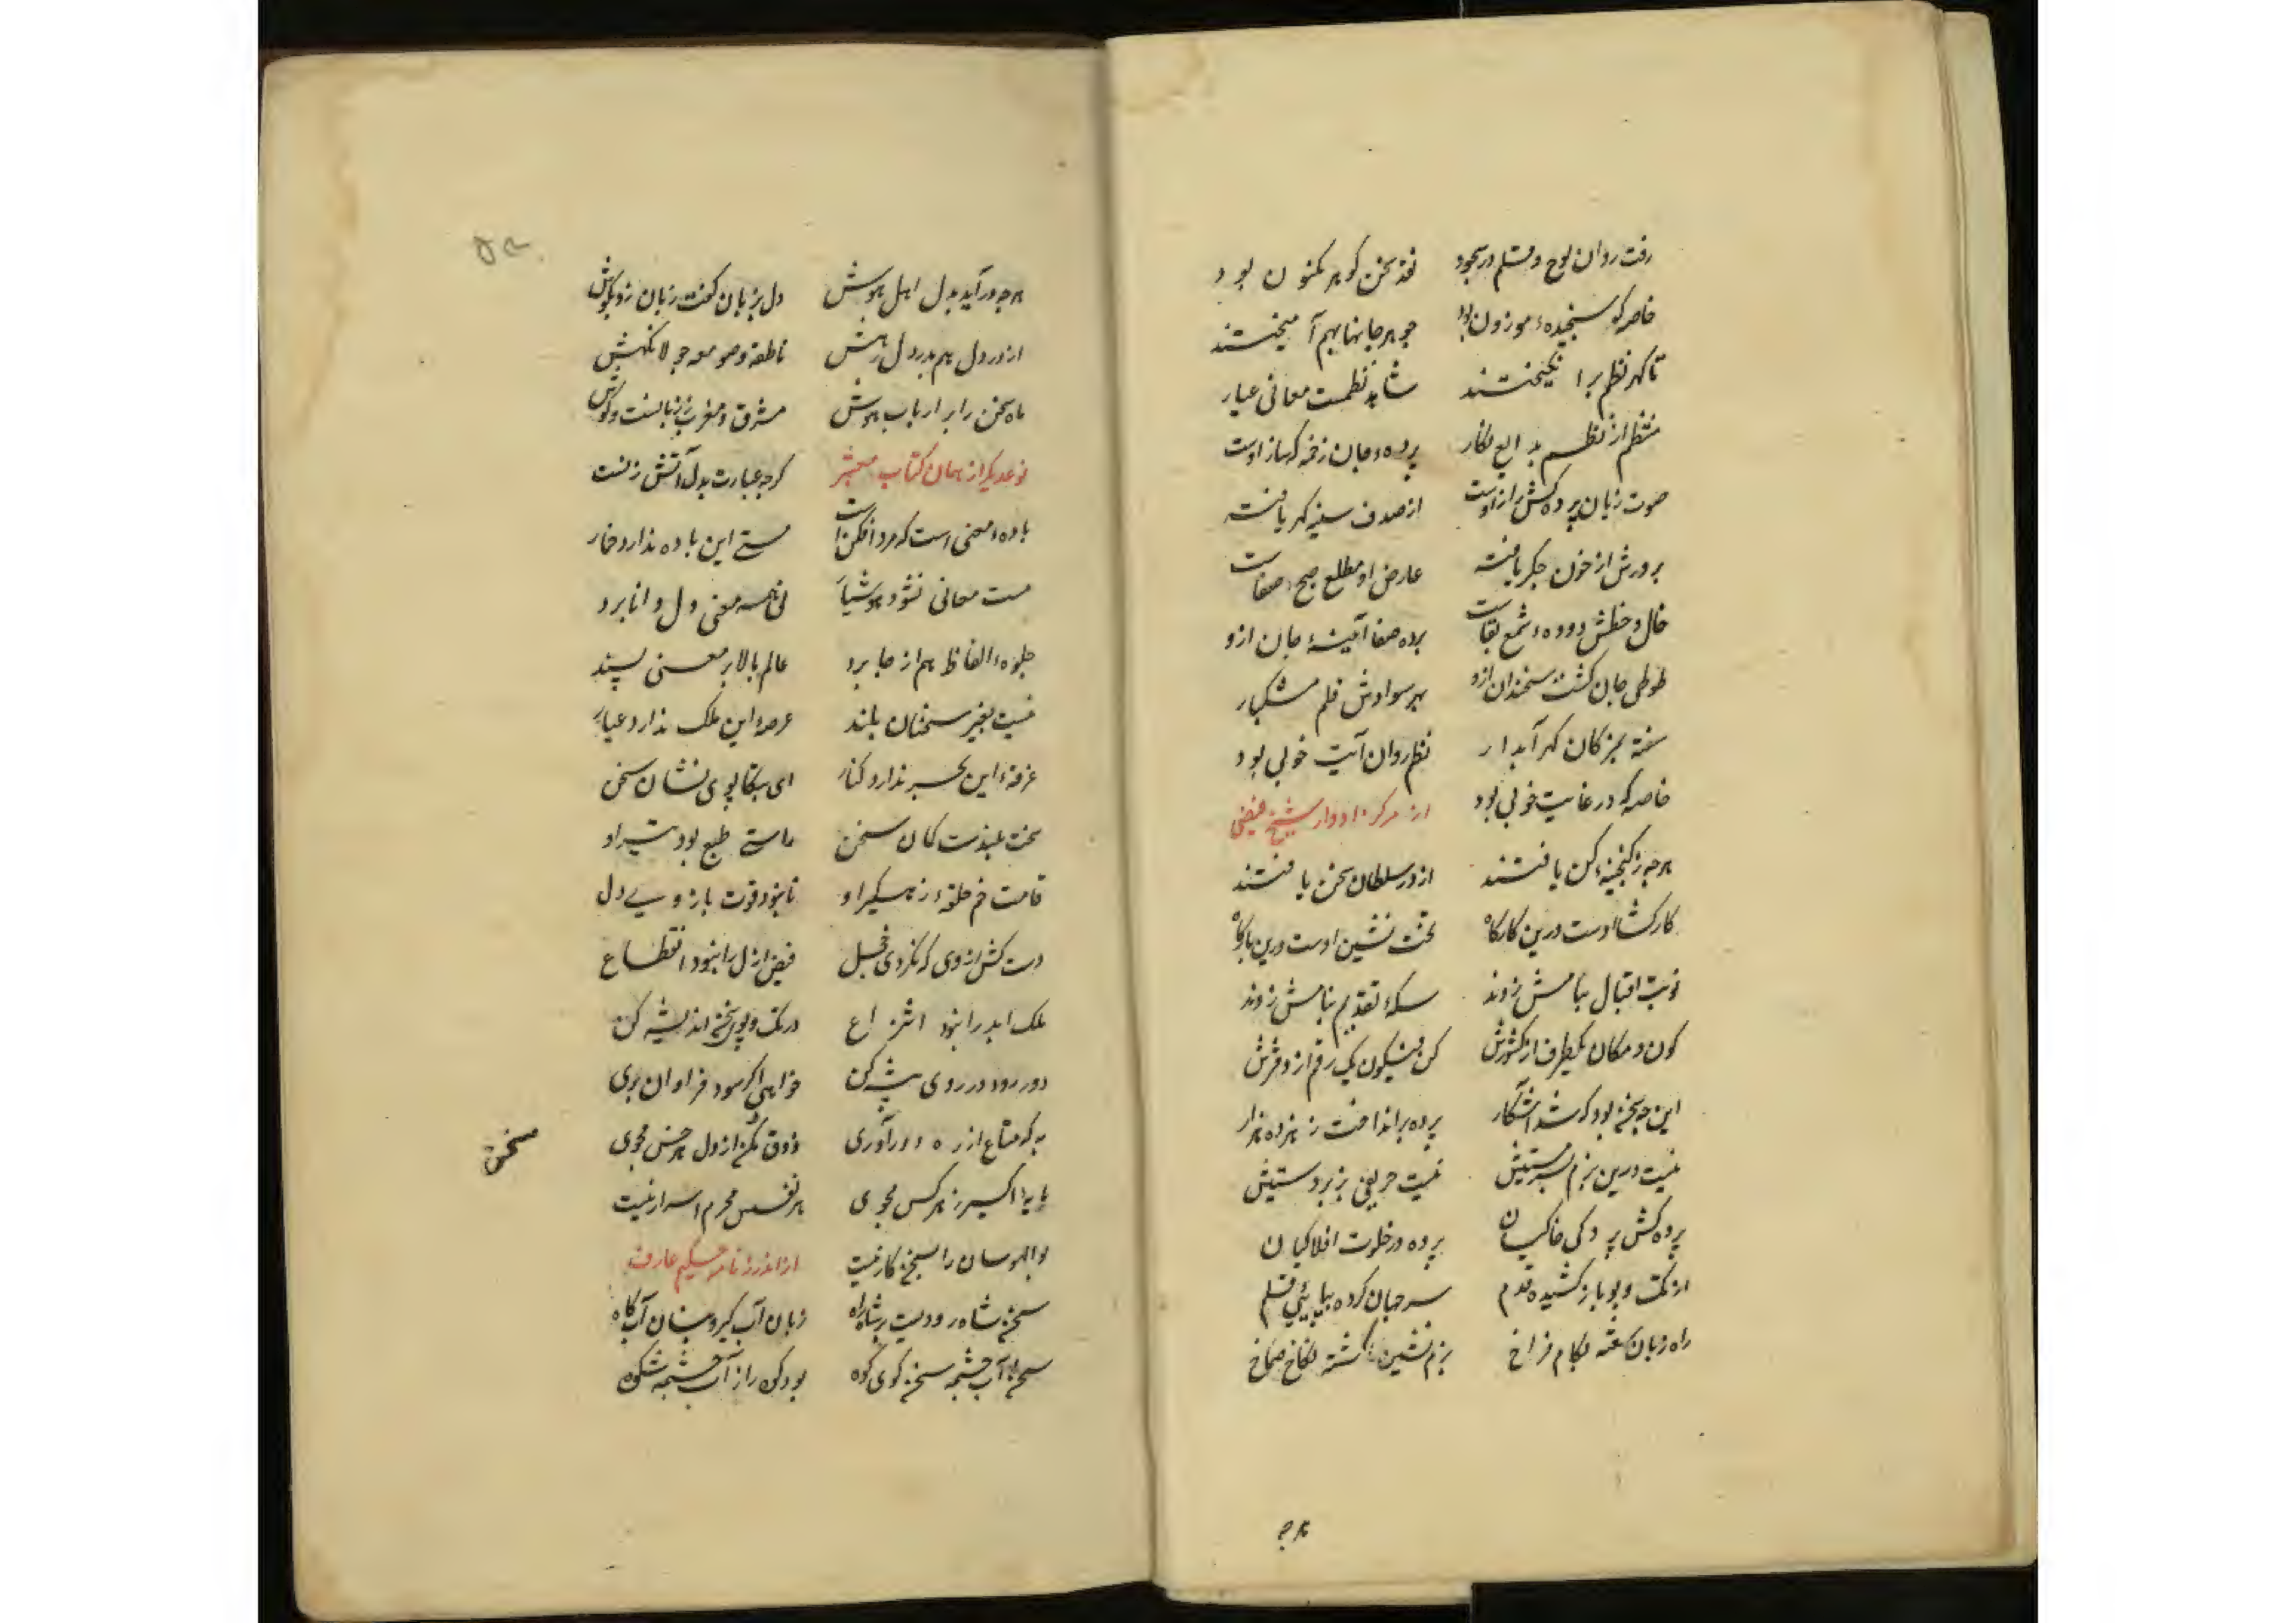 رفت روان لوح و قلم در سجود نقد سخن گوهر مکنون بود
خاصه که سنجیدهٔ موزون بود جوهر جانها بهم آمیختند
تا گهر نظم برانگیختند شاهد نظمست معانی عیار
منتظم از نظم بدایع نگار پردهٔ جان زخمه گه ساز اوست
صوت زبان پرده کش راز اوست از صدف سینه گهر یافته
پرورش از خون جگر یافته عارض او مطلع صبح صفاست
خال و خطش دودهٔ شمع بقاست برده صفا آئینهٔ جان ازو
طوطی جان گشت سخندان ازو بهر سوادش قلم مشکبار
سفته بمژگان گهر آبدار نظم روان آیت خوبی بود
خاصه که در غایت خوبی بود از مرکز ادوار شیخ فیضی
هرچه ز گنجینهٔ کن یافتند از در سلطان سخن یافتند
کارگشا اوست درین کارگاه تخت نشین اوست درین بارگاه
نوبت اقبال ببامش زدند سکهٔ تقدیم بنامش زدند
کون و مکان یکطرف از کشورش کن فیکون یک رقم از دفترش
این چه سخن بود که شد آشکار پرده برانداخت ز هژده هزار
نیست درین بزم بسرمستیش نیست حریفی بزبردستیش
پرده کش پردگی خاکیان پرده در خلوت افلاکیان
از تک و پو باز کشیده قدم سر جهان کرده بپای قلم
راه زبان گفته بکام فراخ بزم نشین گشته بکاخ صماخ
هرچه
هرچه درآید بدل اهل هوش دل بزبان گفت زبان زد بگوش
از در دل هم بدر دل رهش ناطقه و صومعه جولانگهش
ماه سخن را بر ارباب هوش مشرق و مغرب ز زبانست و گوش
نوعدیگر از همان کتاب گرچه عبارت بدل آتش زنست
بادهٔ معنی است که مرد افکن است مستی این باده ندارد خمار
مست معانی نشود هوشیار معنی دل دانا برد
جلوهٔ الفاظ هم از جا برد عالم بالا بر معنی پسند
نیست بغیر سخنان بلند عرصهٔ این ملک ندارد
غرقهٔ این بحر ندارد کنار ای بتکاپوی نشان سخن
سخت بلندست کمان سخن طبع بود تیر او
قامت خم حلقهٔ زهگیر او تا نبود قوت بازوی دل
دست کش از وی که نگردی خجل فیض ازل را نبود انقطاع
ملک ابد را نبود انتزاع در تک و پوی سخن اندیشه کن
دور رود در روی پیشه کن خواهی اگر سود فراوان بری
به که متاع از ره دور آوری ذوق سخن از دل هر خس مجوی
اکسیر ز هر کس مجوی هر نفس محرم اسرار نیست
بوالهوسان را بسخن کار نیست از اندرزنامه حکیم عارف
سخن شاه رودیست زبان آبگیر و بنان آبگاه
سخن آب چشمه سخن گوی کوه بود کوه را ز آب چشمه شکوه
سخن